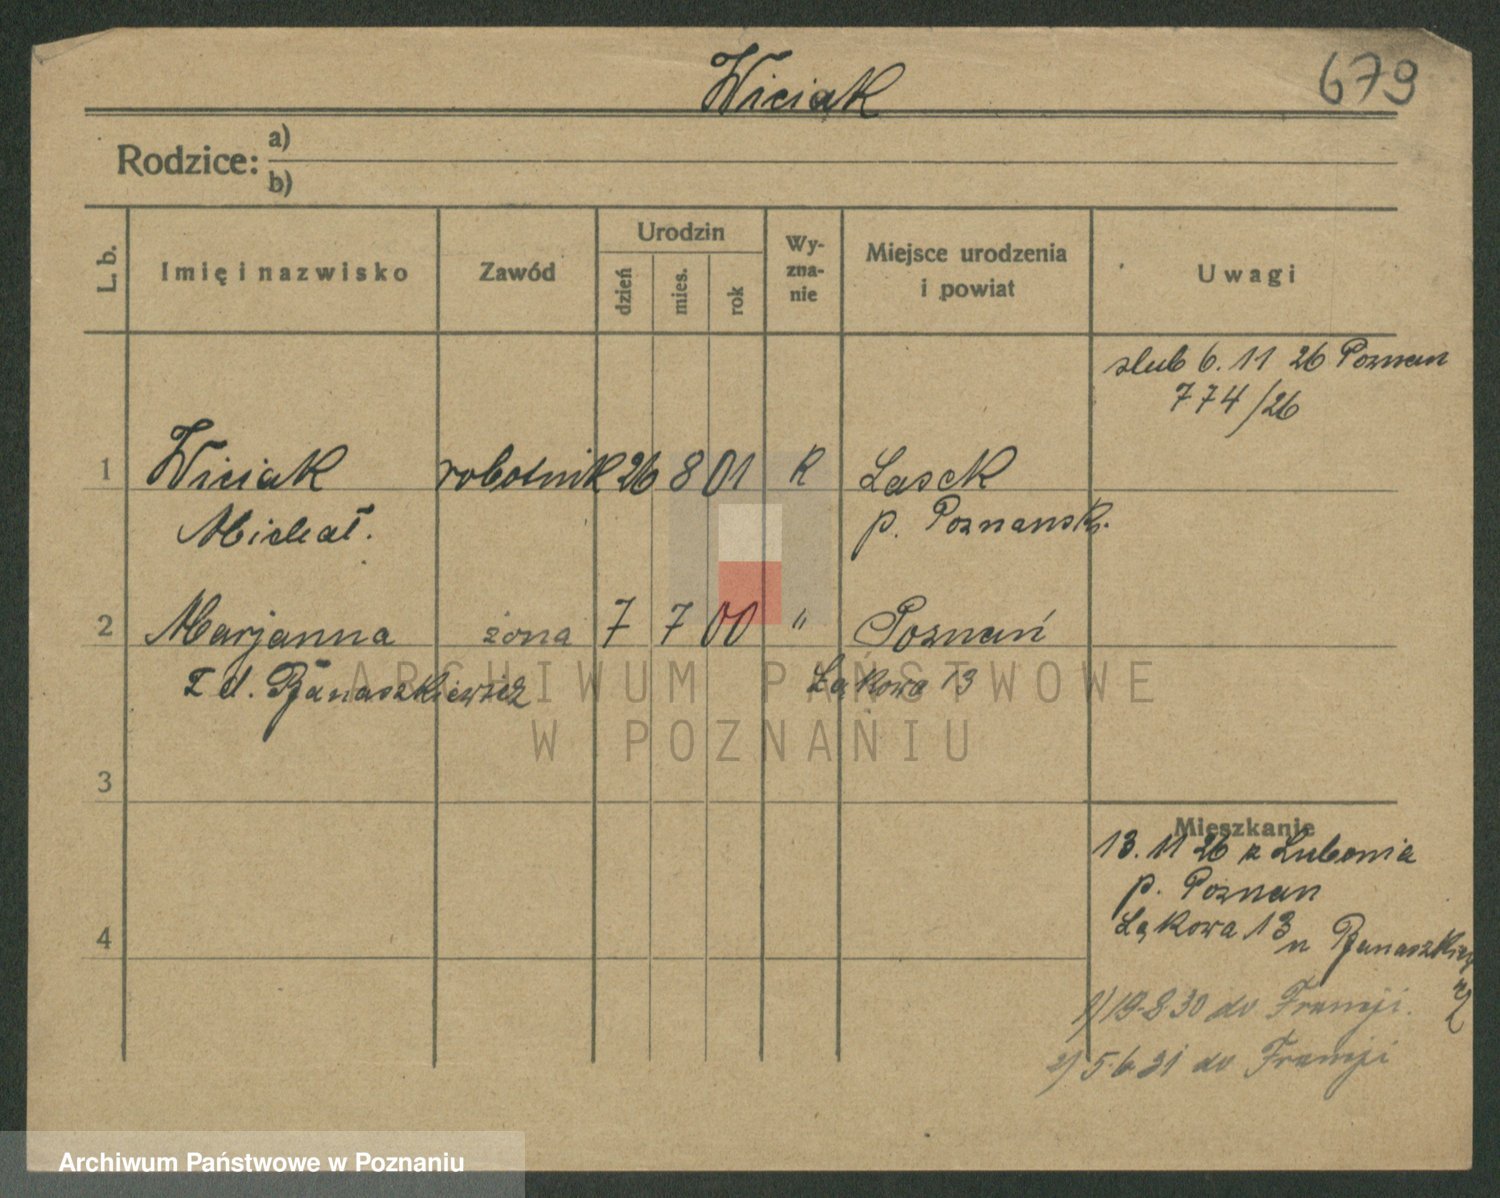 Wiciak
679
Rodzice: a)
b)
L. b.
Imię i nazwisko
Zawód
Urodzin
dzień
mies.
rok
Wy-
zna-
nie
Miejsce urodzenia
i powiat
Uwagi
slub 6. 11 26 Poznan
774/26
1 Wiciak robotnik 26 8 01 R Lasek
Michał. p. Poznansk.
2 Marjanna żona 7 7 00 " Poznań
z d. Banaszkiewicz Łąkowa 13
3
4
Mieszkanie
13. 11 26 z Lubonia
p. Poznan
Łąkowa 13
u Banaszkiewicz
1) 19.8.30 do Francji.
2) 5.6.31 do Francji
ARCHIWUM PAŃSTWOWE
W POZNANIU
Archiwum Państwowe w Poznaniu